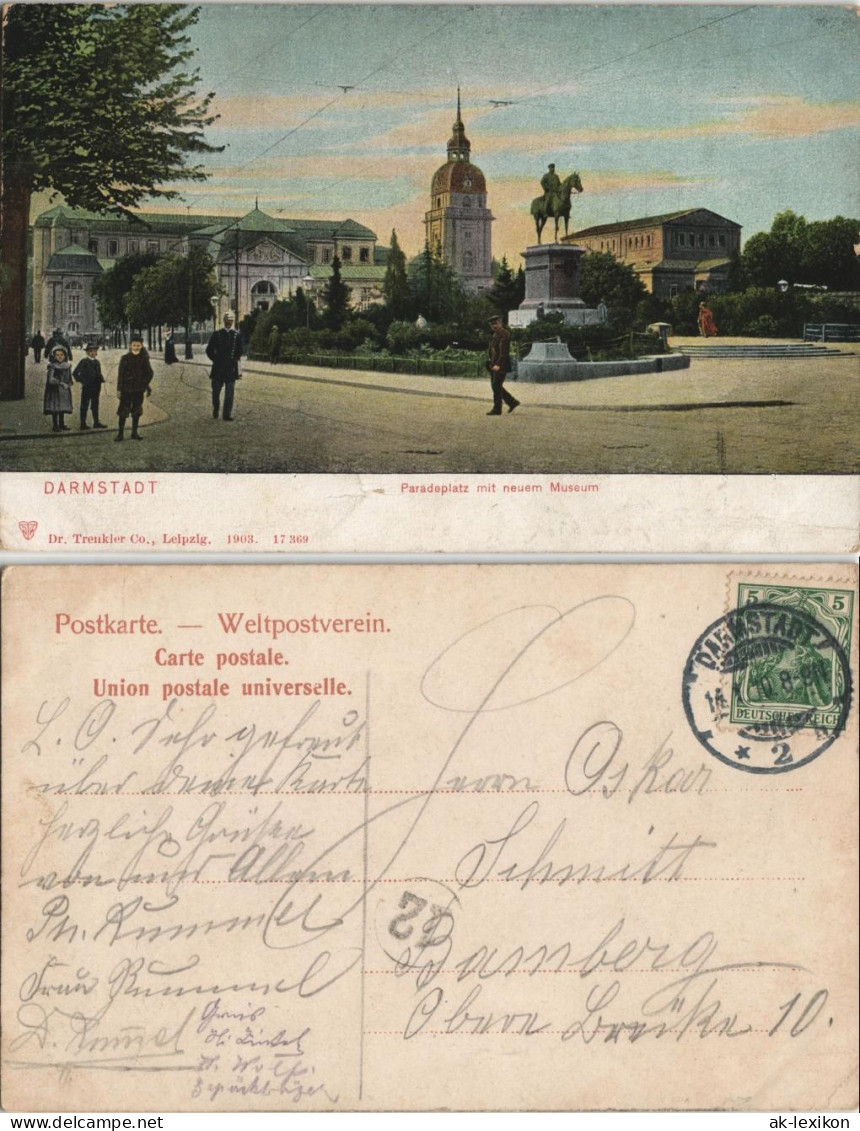 DARMSTADT
Paradeplatz mit neuem Museum
Dr. Trenkler Co., Leipzig. 1903. 17 369
Postkarte. — Weltpostverein.
Carte postale.
Union postale universelle.
5 5
DEUTSCHES REICH
DARMSTADT
10. 8-9
* 2
L. O. Sehr gefreut
über deine Karte
herzliche Grüsse
von uns Allen
Ph. Rummel
Frau Rummel
Herrn Oskar
Schmitt
Bamberg
Obere Brücke 10.
22
Gruss
Gepäckträger
© ak-ansichtskarten.de
ak-lexikon